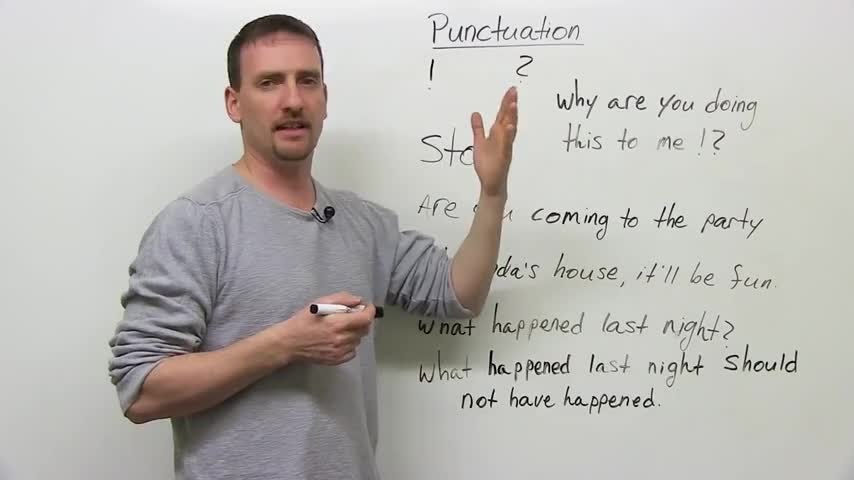 Punctuation
! ?
Why are you doing
this to me !?
Are coming to the party
house, it'll be fun.
What happened last night?
What happened last night should
not have happened.